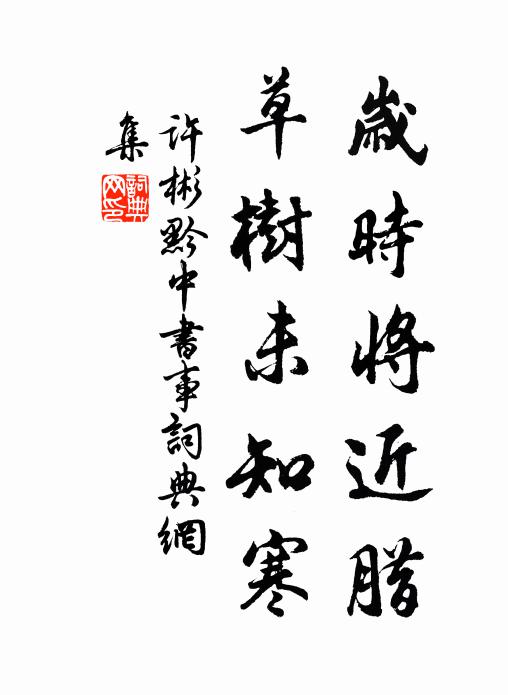 歲時將近腊
草樹未知寒
許彬黔中書事詞典網
集
詞典
网印